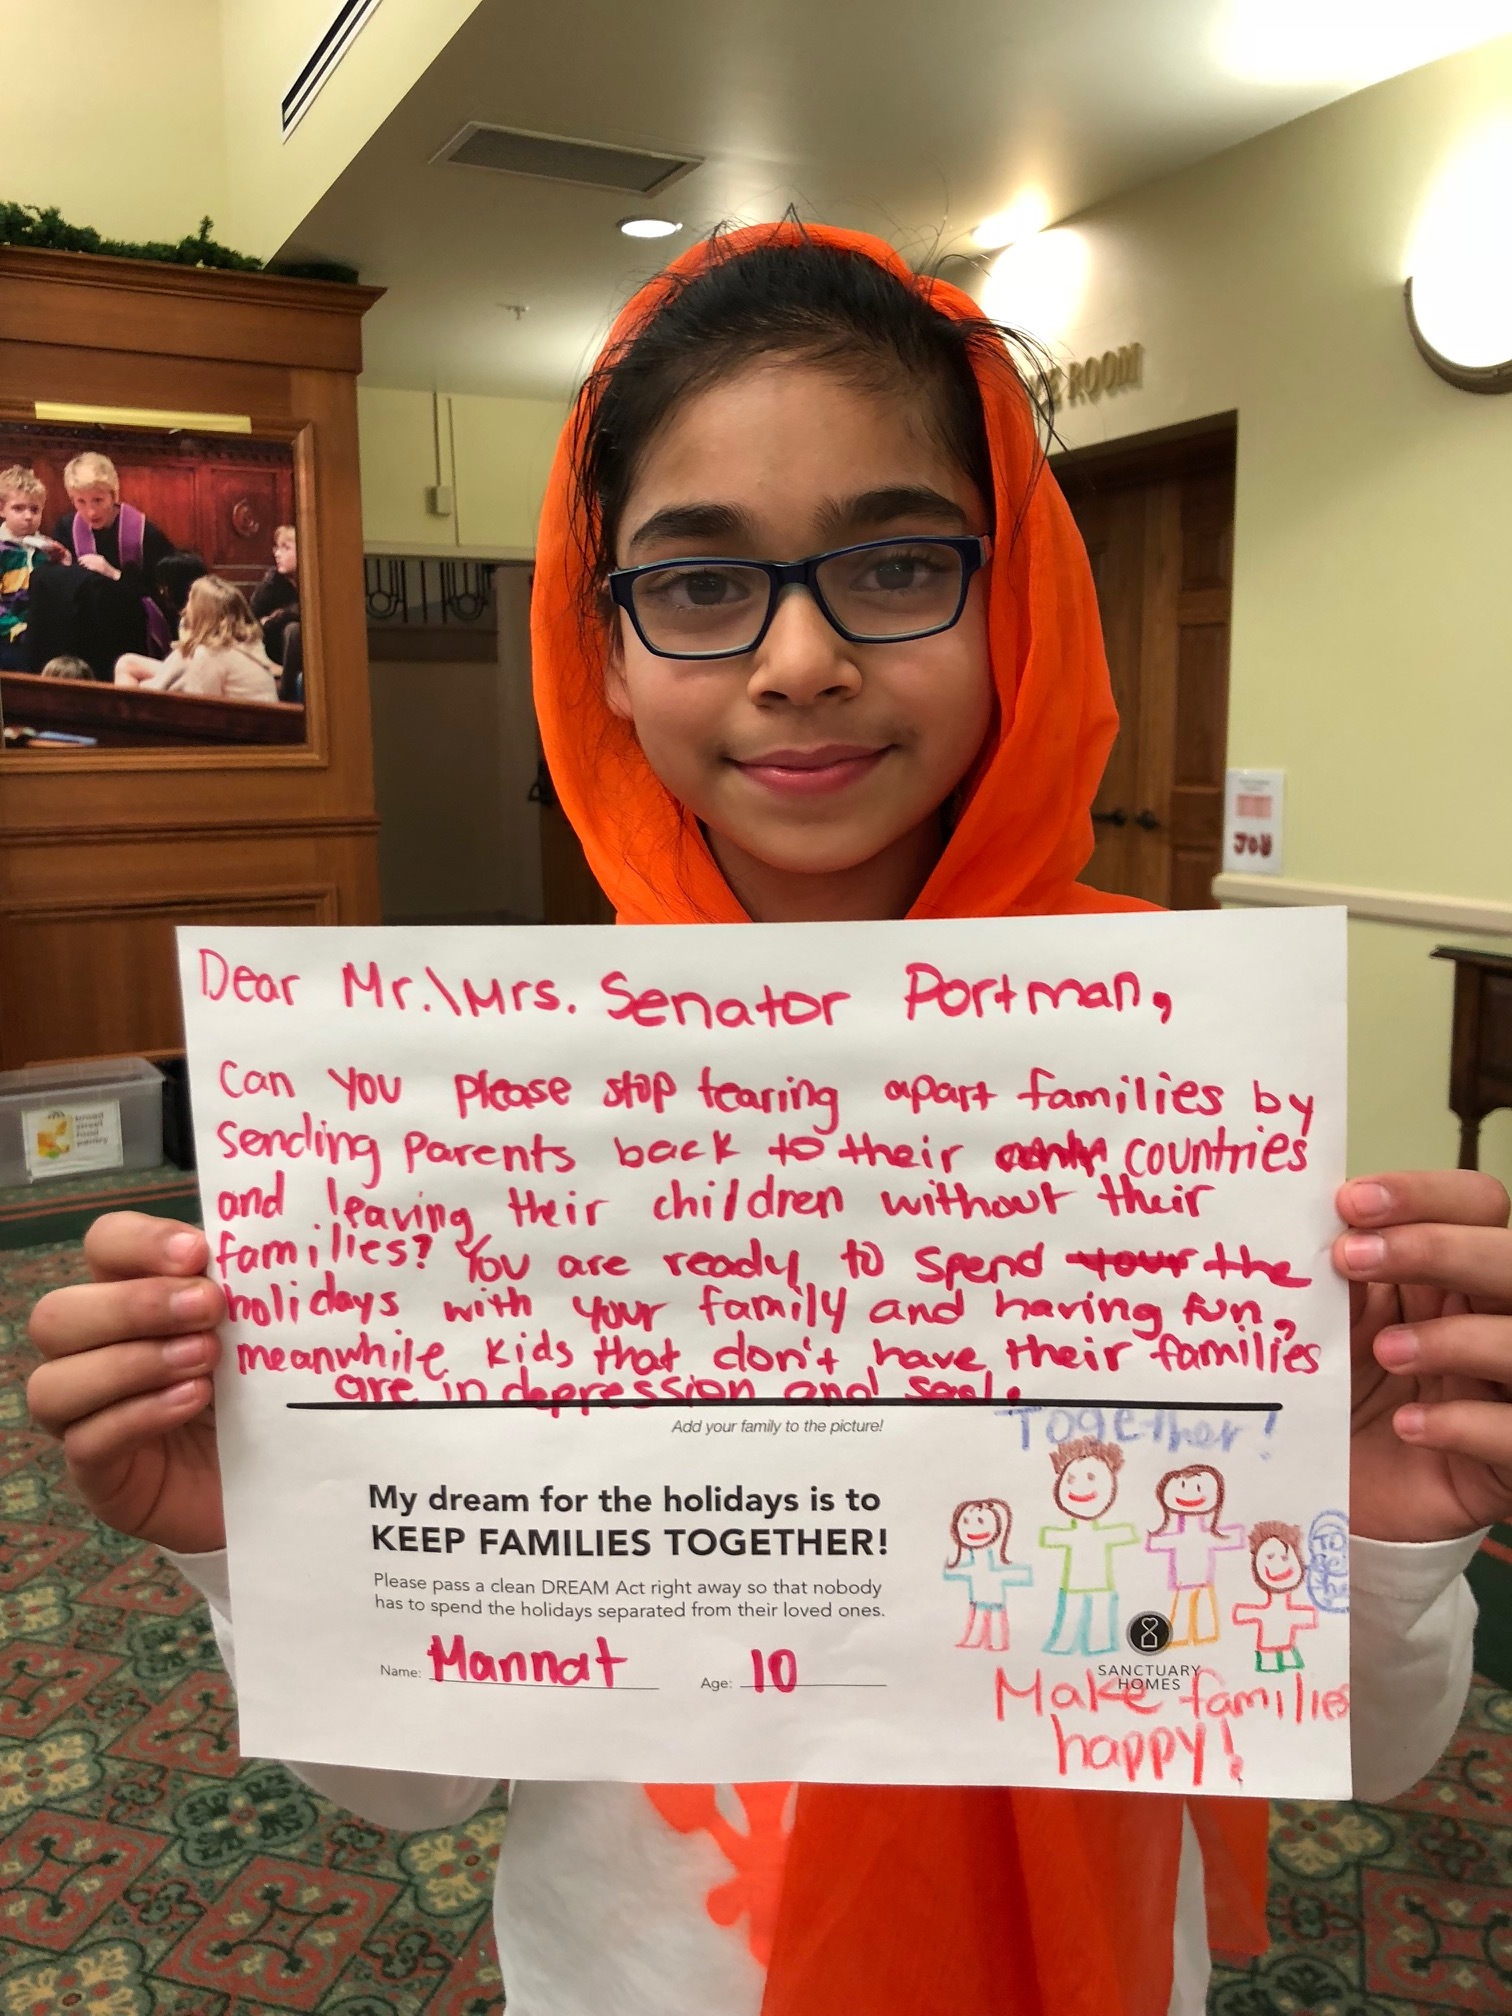 CE ROOM
JOY
Dear Mr.\Mrs. Senator Portman,
Can you please stop tearing apart families by
sending parents back to their countries
and leaving their children without their
families? You are ready to spend your the
holidays with your family and having fun,
meanwhile kids that don't have their families
are in depression and sad.
Add your family to the picture!
Together!
My dream for the holidays is to
KEEP FAMILIES TOGETHER!
Please pass a clean DREAM Act right away so that nobody
has to spend the holidays separated from their loved ones.
Name: Mannat Age: 10
SANCTUARY
HOMES
Make families
happy!